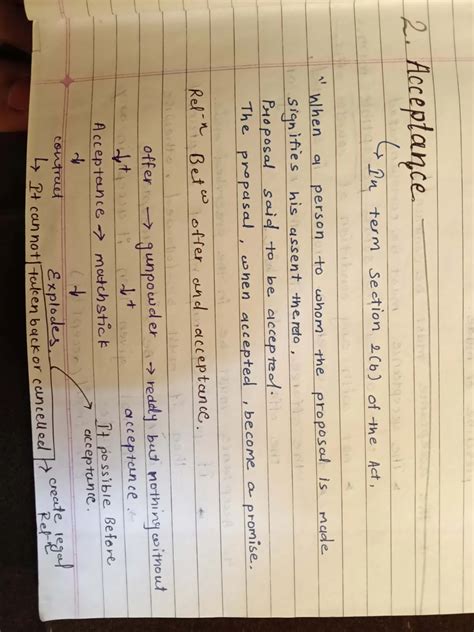 2. Acceptance
↳ In term Section 2(b) of the Act,
"When a person to whom the proposal is made
signifies his assent thereto,
Proposal said to be accepted.
The proposal, when accepted, become a promise.
Rel-n Betw offer and acceptance.
offer → gunpowder → ready but nothing without
acceptance.
↓+ ↓+
Acceptance → matchstick
It possible Before
acceptance.
↓ ↓
contract Explodes.
↳ It cannot taken back or cancelled → create legal
Rel-n